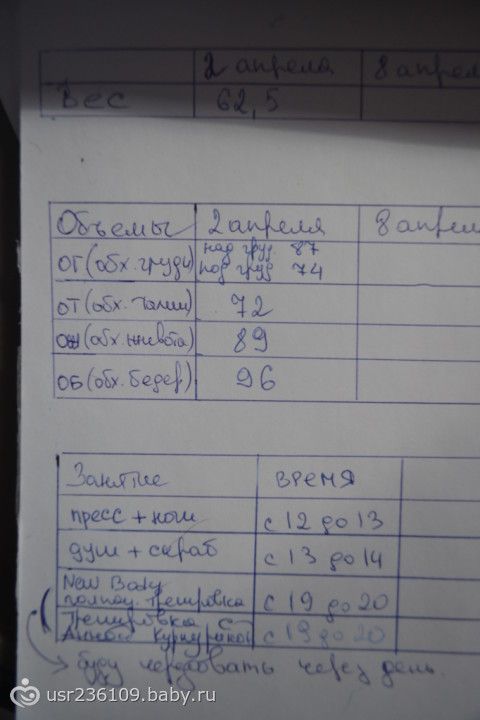 2 апреля 8 апрел
Вес 62,5
Объемы 2 апреля 8 апрел
ОГ (обх. груди) над груд 87
под груд 74
ОТ (обх. талии) 72
ОЖ (обх. живота) 89
ОБ (обх. бедер) 96
Занятие время
пресс + ноги с 12 до 13
душ + скраб с 13 до 14
New Body
тренировка с 19 до 20
Тренировка с
Куркуриной с 19 до 20
буду чередовать через день.
usr236109.baby.ru